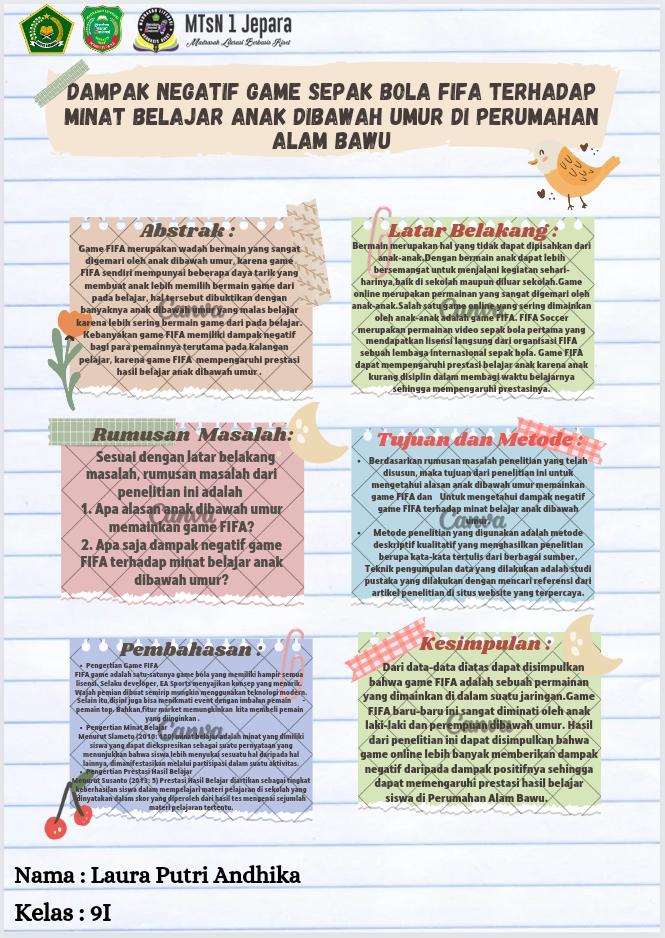 MTsN 1 Jepara
Madrasah Literasi Berbasis Riset
DAMPAK NEGATIF GAME SEPAK BOLA FIFA TERHADAP
MINAT BELAJAR ANAK DIBAWAH UMUR DI PERUMAHAN
ALAM BAWU
Abstrak :
Game FIFA merupakan wadah bermain yang sangat
digemari oleh anak dibawah umur, karena game
FIFA sendiri mempunyai beberapa daya tarik yang
membuat anak lebih memilih bermain game dari
pada belajar, hal tersebut dibuktikan dengan
banyaknya anak dibawah umur yang malas belajar
karena lebih sering bermain game dari pada belajar.
Kebanyakan game FIFA memiliki dampak negatif
bagi para pemainnya terutama pada kalangan
pelajar, karena game FIFA mempengaruhi prestasi
hasil belajar anak dibawah umur .
Latar Belakang :
Bermain merupakan hal yang tidak dapat dipisahkan dari
anak-anak.Dengan bermain anak dapat lebih
bersemangat untuk menjalani kegiatan sehari-
harinya,baik di sekolah maupun diluar sekolah.Game
online merupakan permainan yang sangat digemari oleh
anak-anak.Salah satu game online yang sering dimainkan
oleh anak-anak adalah game FIFA. FIFA Soccer
merupakan permainan video sepak bola pertama yang
mendapatkan lisensi langsung dari organisasi FIFA
sebuah lembaga internasional sepak bola. Game FIFA
dapat mempengaruhi prestasi belajar anak karena anak
kurang disiplin dalam membagi waktu belajarnya
sehingga mempengaruhi prestasinya.
Rumusan Masalah:
Sesuai dengan latar belakang
masalah, rumusan masalah dari
penelitian ini adalah
1. Apa alasan anak dibawah umur
memainkan game FIFA?
2. Apa saja dampak negatif game
FIFA terhadap minat belajar anak
dibawah umur?
Tujuan dan Metode :
• Berdasarkan rumusan masalah penelitian yang telah
disusun, maka tujuan dari penelitian ini untuk
mengetahui alasan anak dibawah umur memainkan
game FIFA dan Untuk mengetahui dampak negatif
game FIFA terhadap minat belajar anak dibawah
umur.
• Metode penelitian yang digunakan adalah metode
deskriptif kualitatif yang menghasilkan penelitian
berupa kata-kata tertulis dari berbagai sumber.
Teknik pengumpulan data yang dilakukan adalah studi
pustaka yang dilakukan dengan mencari referensi dari
artikel penelitian di situs website yang terpercaya.
Pembahasan :
• Pengertian Game FIFA
FIFA game adalah satu-satunya game bola yang memiliki hampir semua
lisensi. Selaku developer, EA Sports menyajikan konsep yang menarik.
Wajah pemian dibuat semirip mungkin menggunakan teknologi modern.
Selain itu,disini juga bisa menikmati event dengan imbalan pemain
pemain top. Bahkan,fitur market memungkinkan kita membeli pemain
yang diinginkan .
• Pengertian Minat Belajar
Menurut Slameto (2010: 180) minat belajar adalah minat yang dimiliki
siswa yang dapat diekspresikan sebagai suatu pernyataan yang
menunjukkan bahwa siswa lebih menyukai sesuatu hal daripada hal
lainnya, dimanifestasikan melalui partisipasi dalam suatu aktivitas.
• Pengertian Prestasi Hasil Belajar
Menurut Susanto (2013: 5) Prestasi Hasil Belajar diartikan sebagai tingkat
keberhasilan siswa dalam mempelajari materi pelajaran di sekolah yang
dinyatakan dalam skor yang diperoleh dari hasil tes mengenai sejumlah
materi pelajaran tertentu.
Kesimpulan :
Dari data-data diatas dapat disimpulkan
bahwa game FIFA adalah sebuah permainan
yang dimainkan di dalam suatu jaringan.Game
FIFA baru-baru ini sangat diminati oleh anak
laki-laki dan perempuan dibawah umur. Hasil
dari penelitian ini dapat disimpulkan bahwa
game online lebih banyak memberikan dampak
negatif daripada dampak positifnya sehingga
dapat memengaruhi prestasi hasil belajar
siswa di Perumahan Alam Bawu.
Nama : Laura Putri Andhika
Kelas : 9I